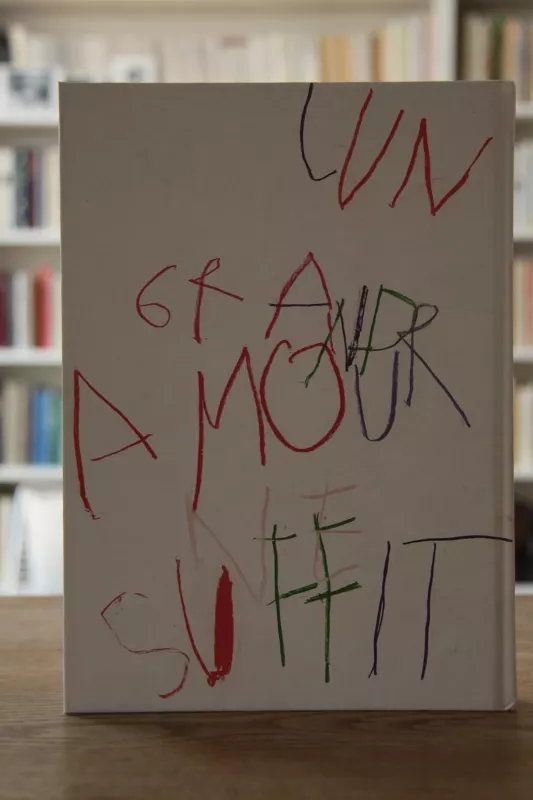 UN
GRAND
AMOUR
NE
SUFFIT